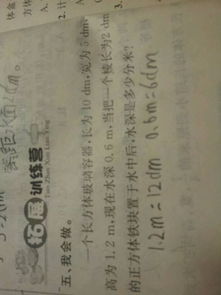 拓展训练营
Tuo Zhan Xun Lian Ying
五、我会做。
一个长方体玻璃容器,长为10 dm,宽为5 dm,
高为1.2 m,现在水深0.6 m,当把一个棱长为2 dm
的正方体铁块置于水中后,水深是多少分米?
1.2m=12dm 0.6m=6dm